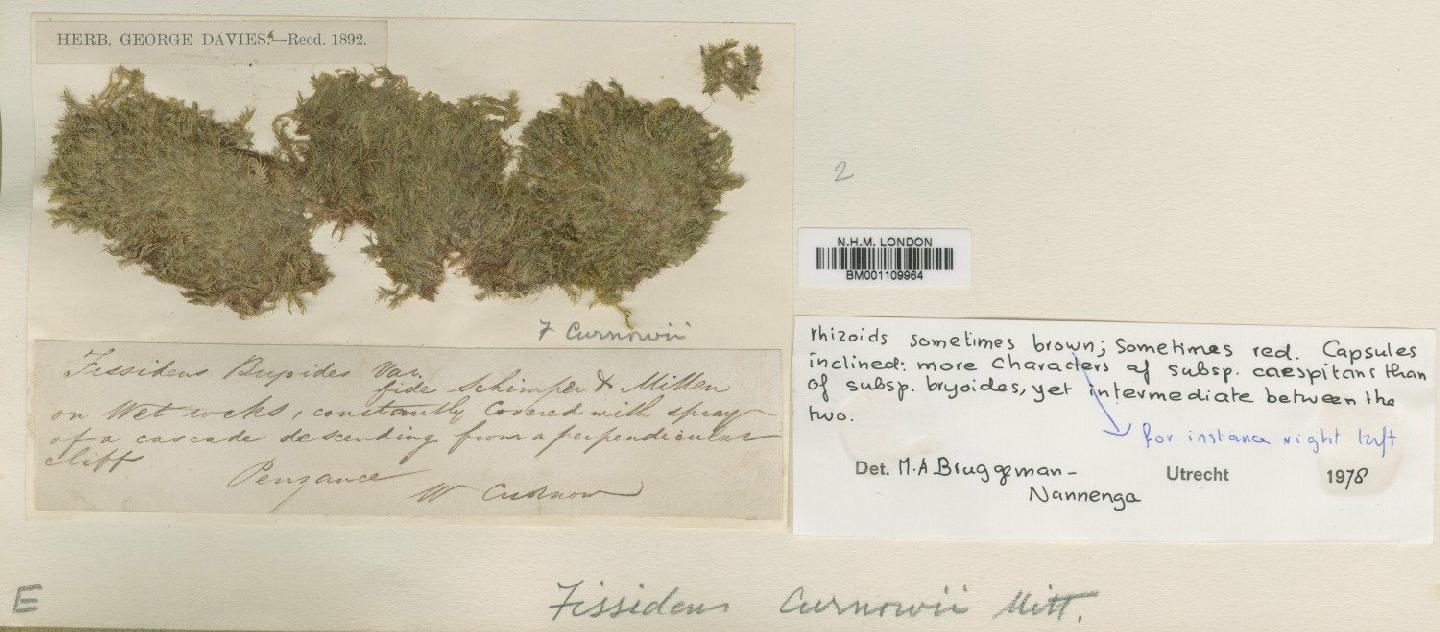 HERB. GEORGE DAVIES.—Recd. 1892.
2
N.H.M. LONDON
BM001109964
F Curnowii
Fissidens Bryoides Var.
fide Schimper & Mitten
on Wet rocks, constantly Covered with spray
of a cascade descending from a perpendicular
cliff
Penzance
W Curnow
rhizoids sometimes brown; Sometimes red. Capsules
inclined: more characters of subsp. caespitans than
of subsp. bryoides, yet intermediate between the
two.
for instance right tuft
Det. M.A Bruggeman-
Nannenga
Utrecht
1978
E
Fissidens Curnowii Mitt.